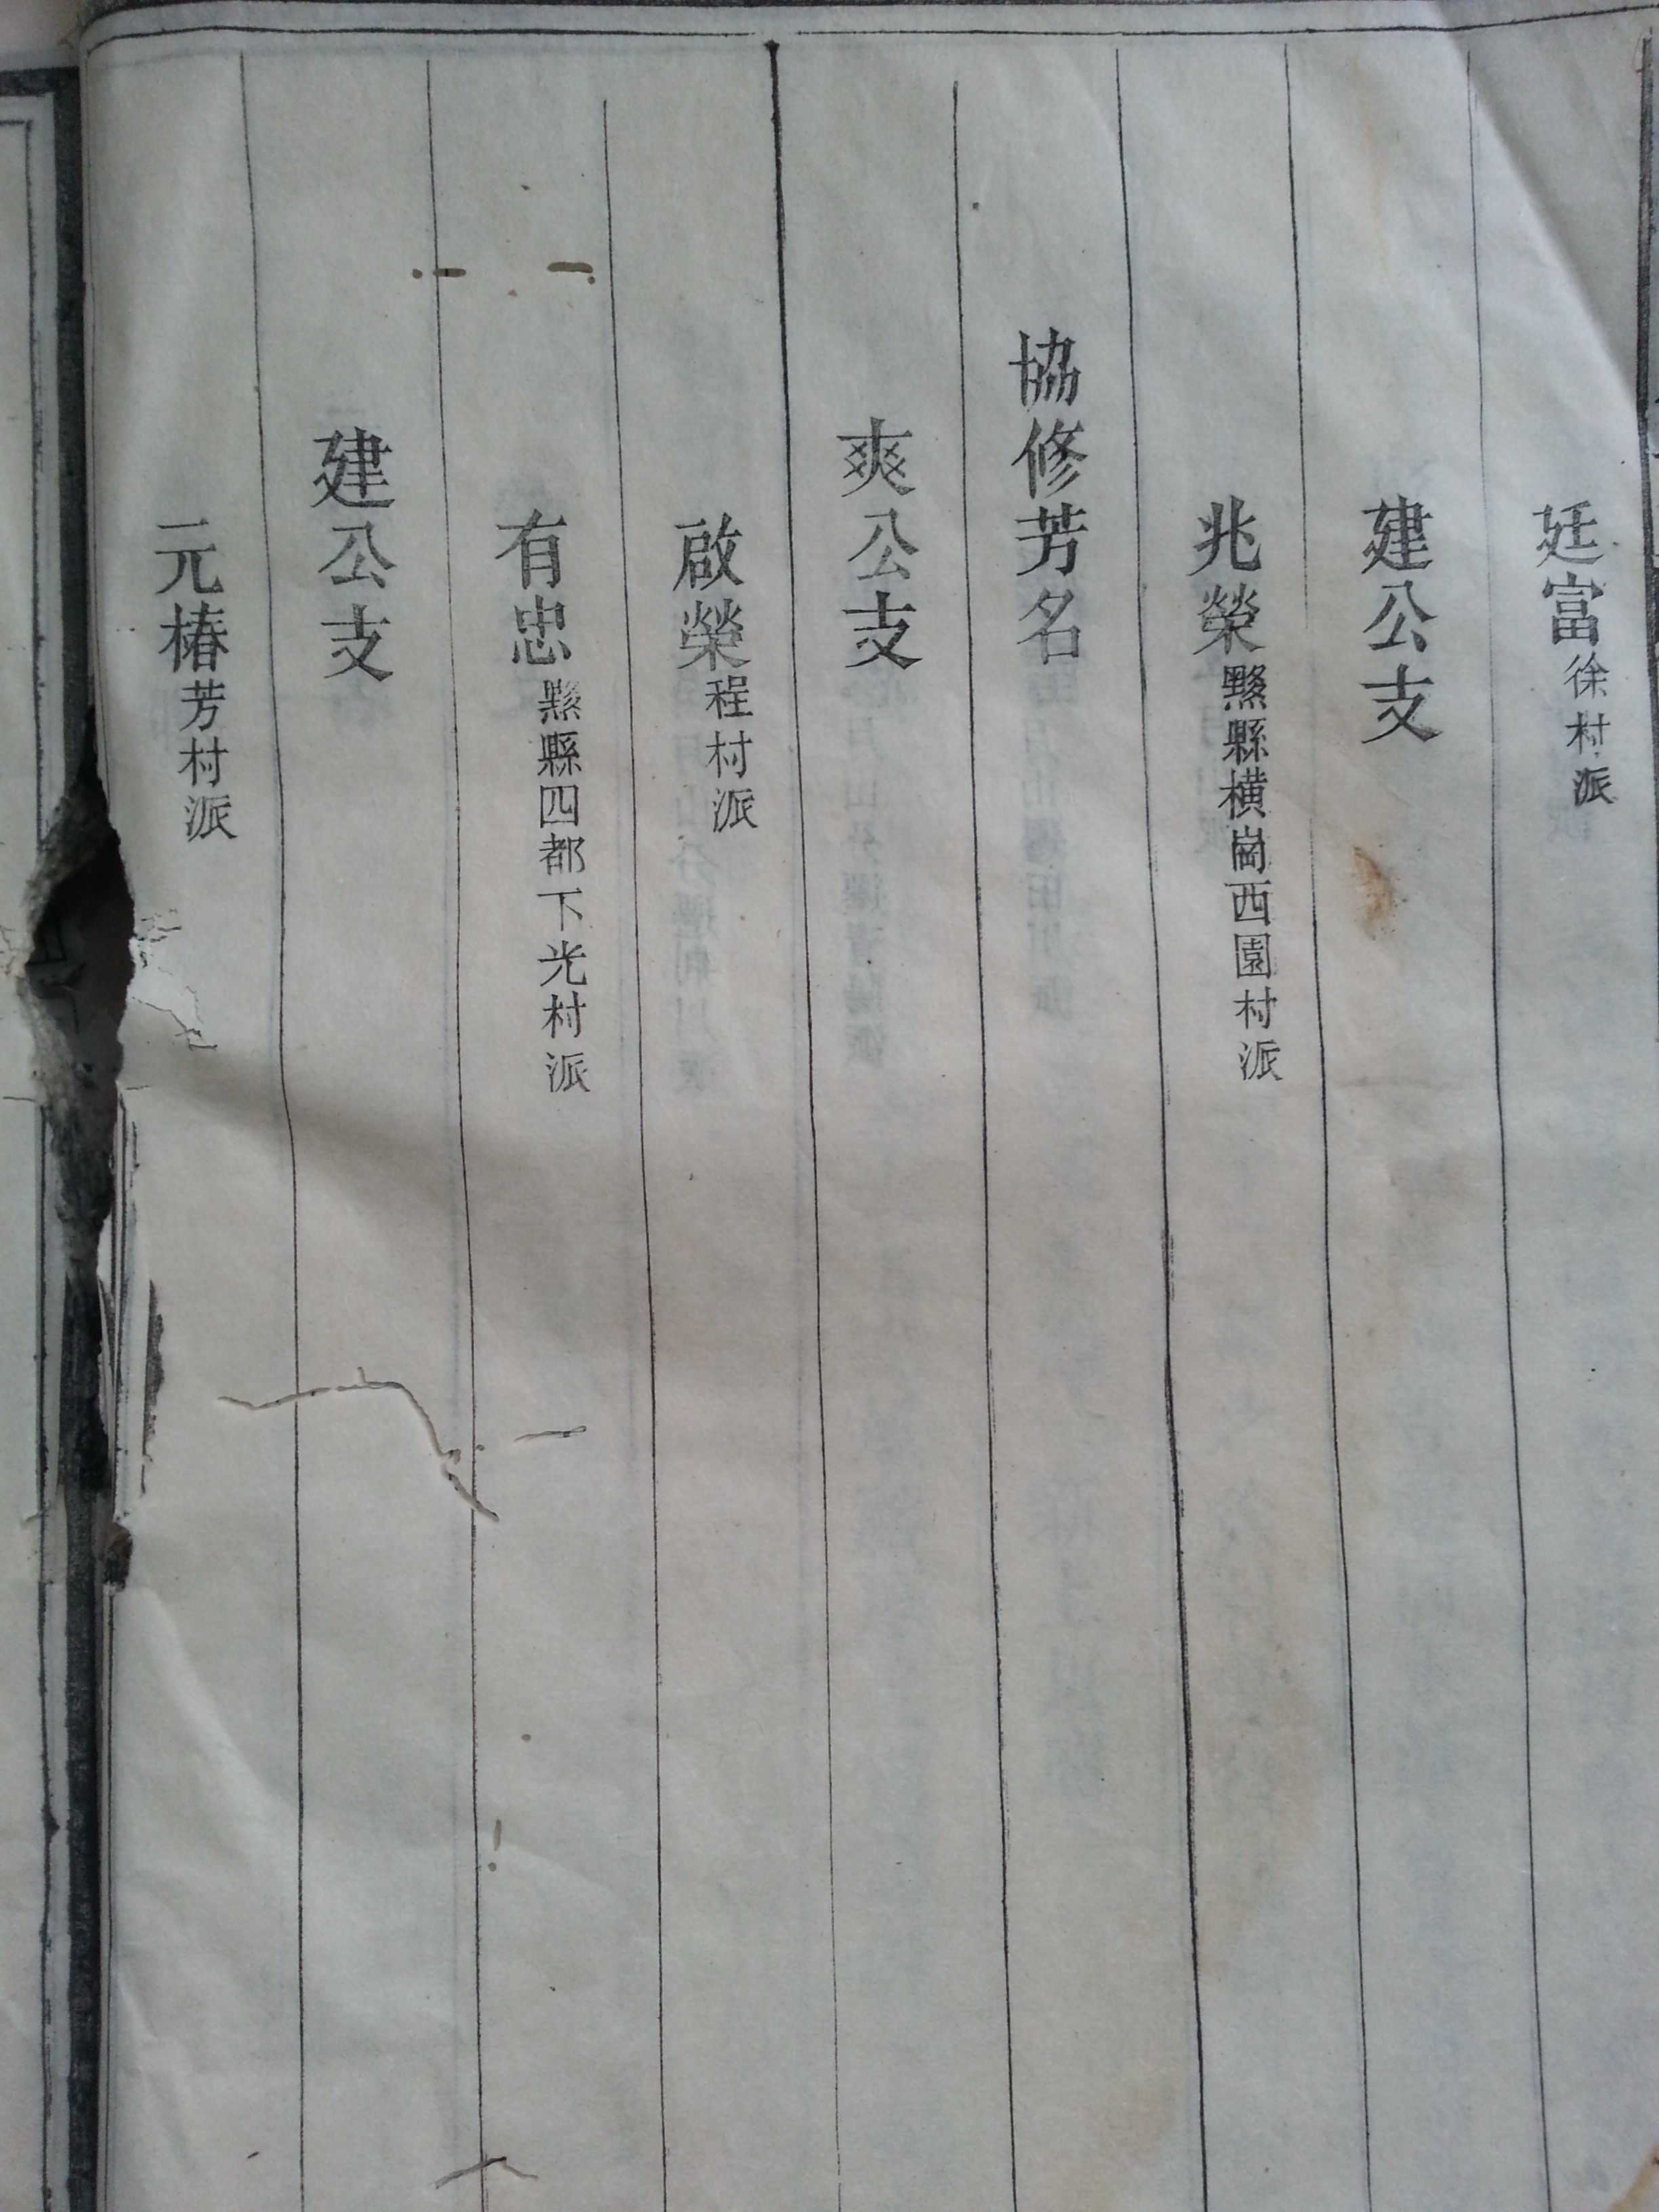 廷富徐村派
建公支
兆榮黟縣橫崗西園村派
協修芳名
爽公支
啟榮程村派
有忠黟縣四都下光村派
建公支
元椿芳村派